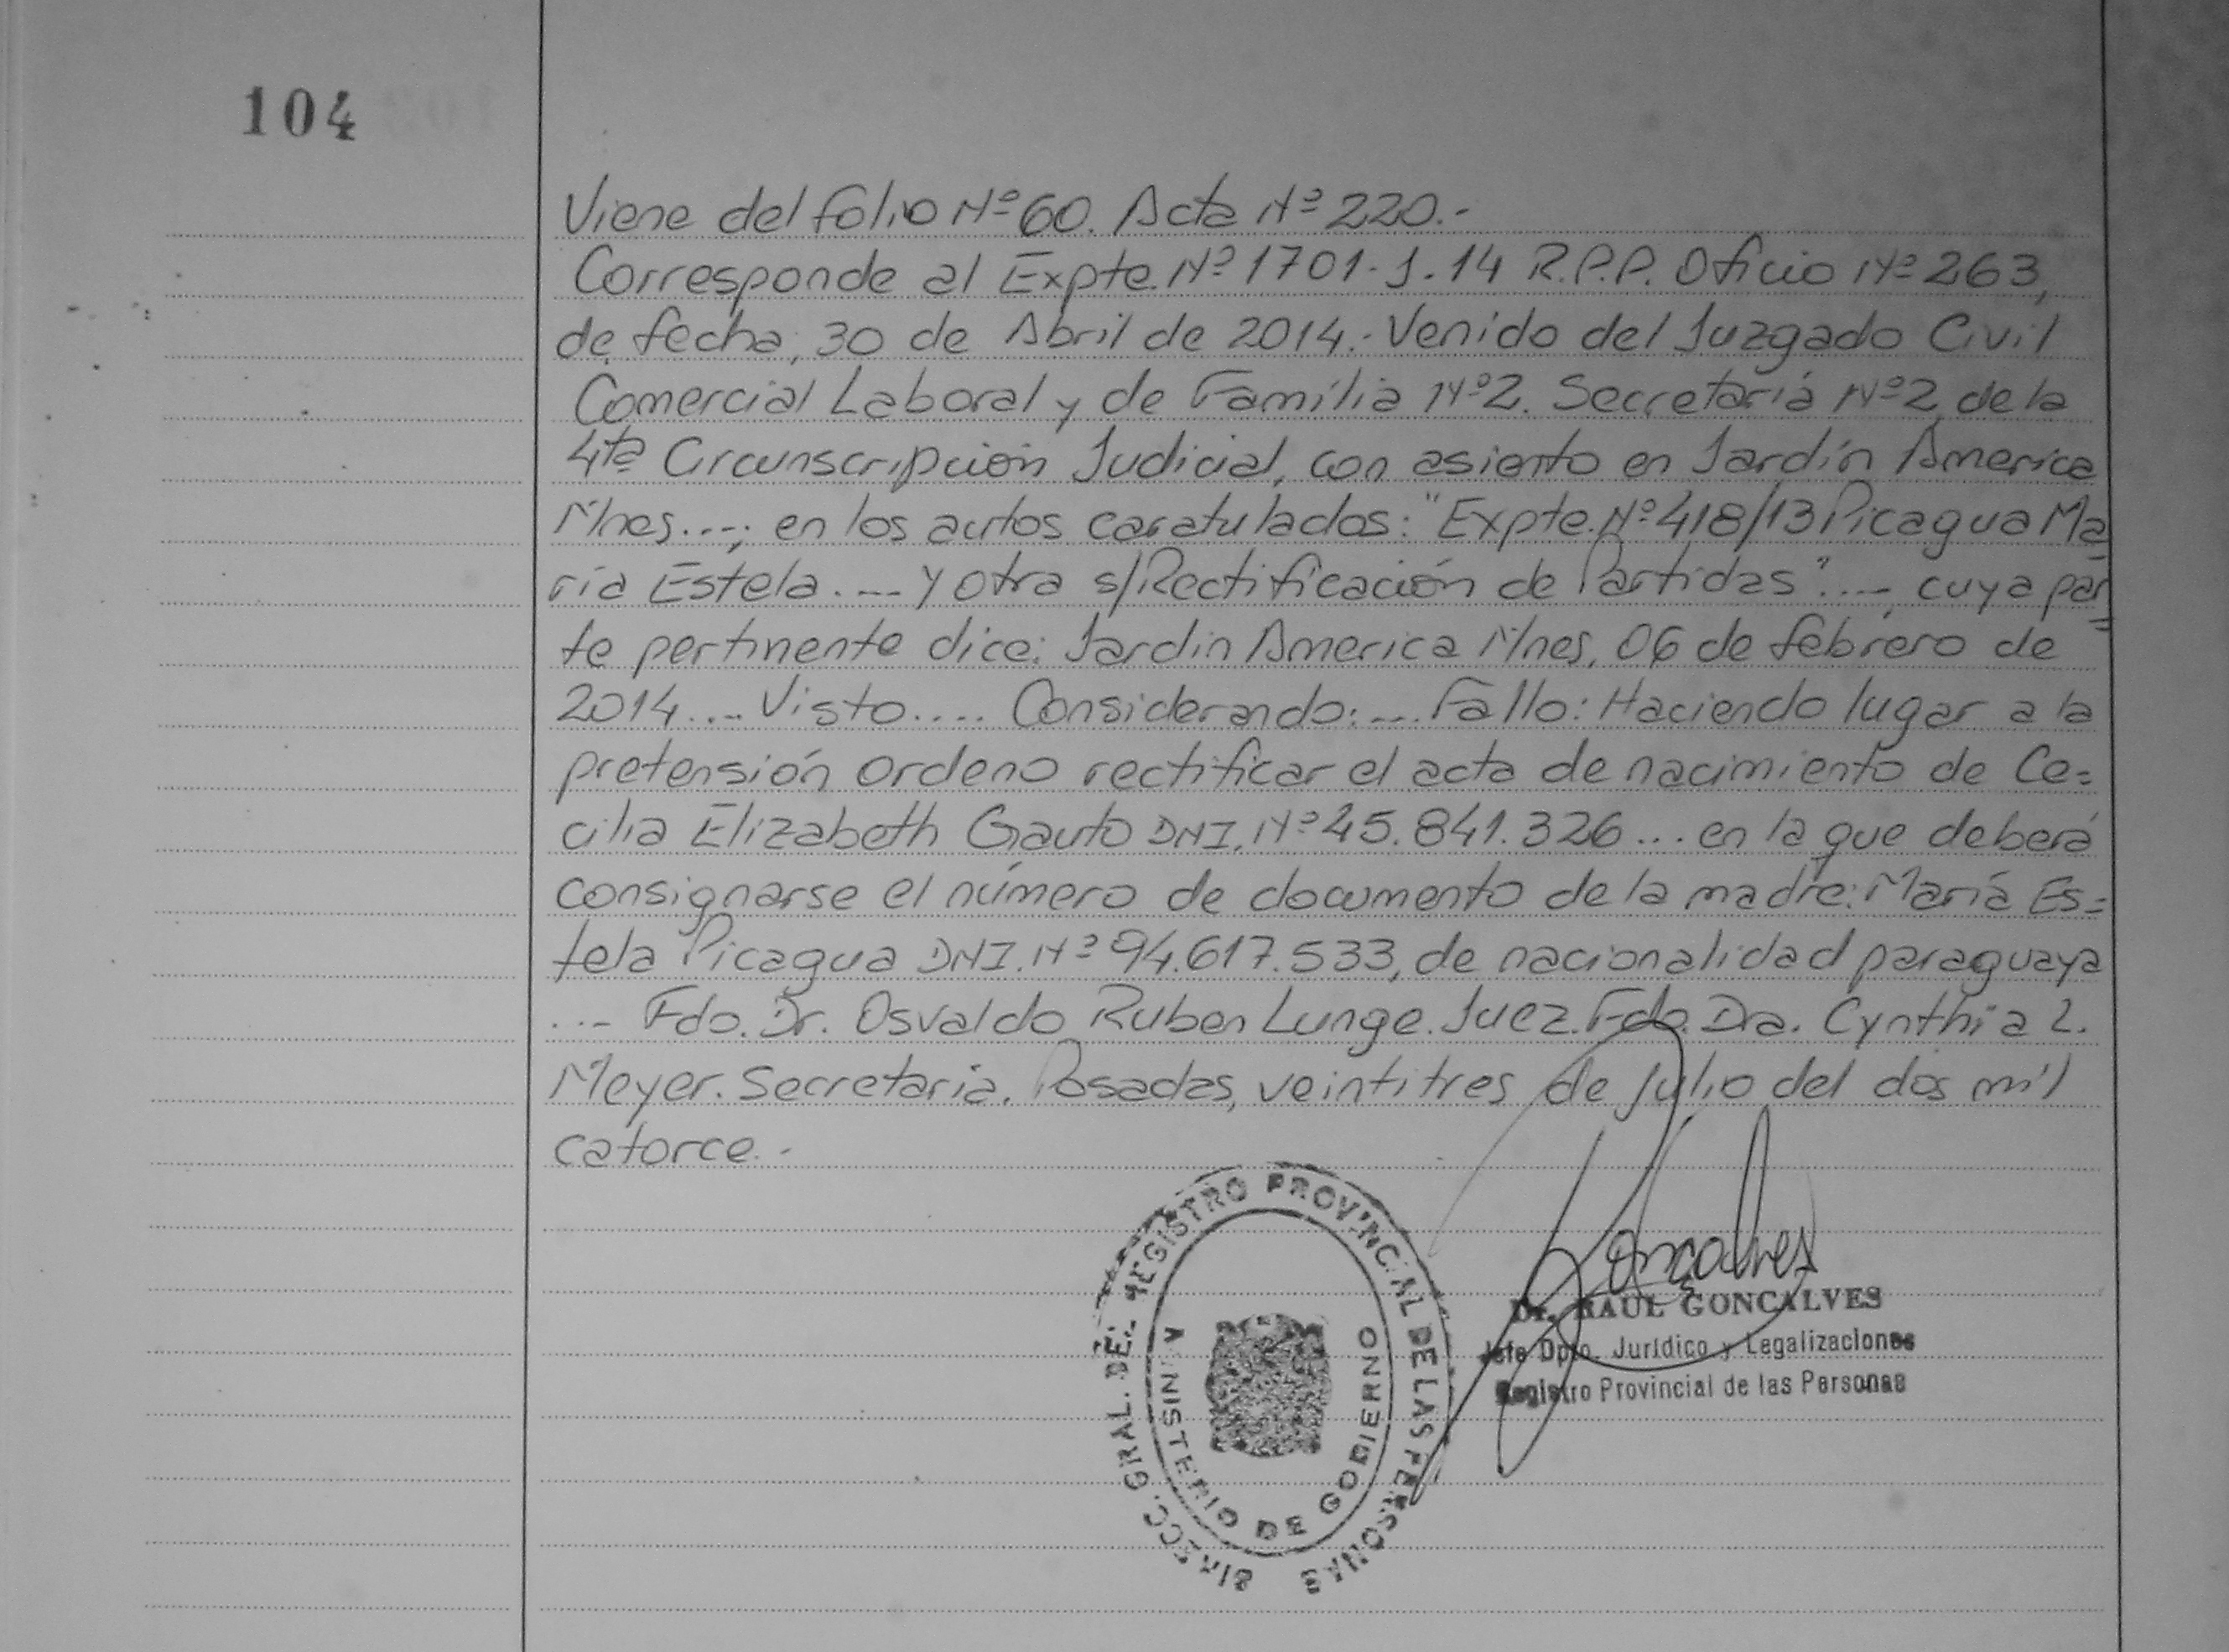 104
Viene del folio Nº 60. Acta Nº 220.-
Corresponde al Expte. Nº 1701-J-14 R.P.P. Oficio Nº 263,
de fecha, 30 de Abril de 2014.- Venido del Juzgado Civil
Comercial Laboral y de Familia Nº 2. Secretaría Nº 2 de la
4ta Circunscripción Judicial, con asiento en Jardín America
Mnes...-; en los autos caratulados: "Expte. Nº 418/13 Picagua Ma
ría Estela.--- y otra s/Rectificación de Partidas"...-, cuya par
te pertinente dice: Jardin America Mnes, 06 de febrero de
2014...- Visto.... Considerando:... Fallo: Haciendo lugar a la
pretensión ordeno rectificar el acta de nacimiento de Ce=
cilia Elizabeth Gauto DNI. Nº 45.841.326... en la que deberá
consignarse el número de documento de la madre: María Es=
tela Picagua DNI. Nº 94.617.533, de nacionalidad paraguaya
...- Fdo. Dr. Osvaldo Ruben Lunge. Juez. Fdo. Dra. Cynthia L.
Meyer. Secretaria. Posadas, veintitres de Julio del dos mil
catorce.-
DIRECC. GRAL. DEL REGISTRO PROVINCIAL DE LAS PERSONAS
MINISTERIO DE GOBIERNO
Gonçalves
Dr. RAUL GONCALVES
Jefe Dpto. Jurídico y Legalizaciones
Registro Provincial de las Personas